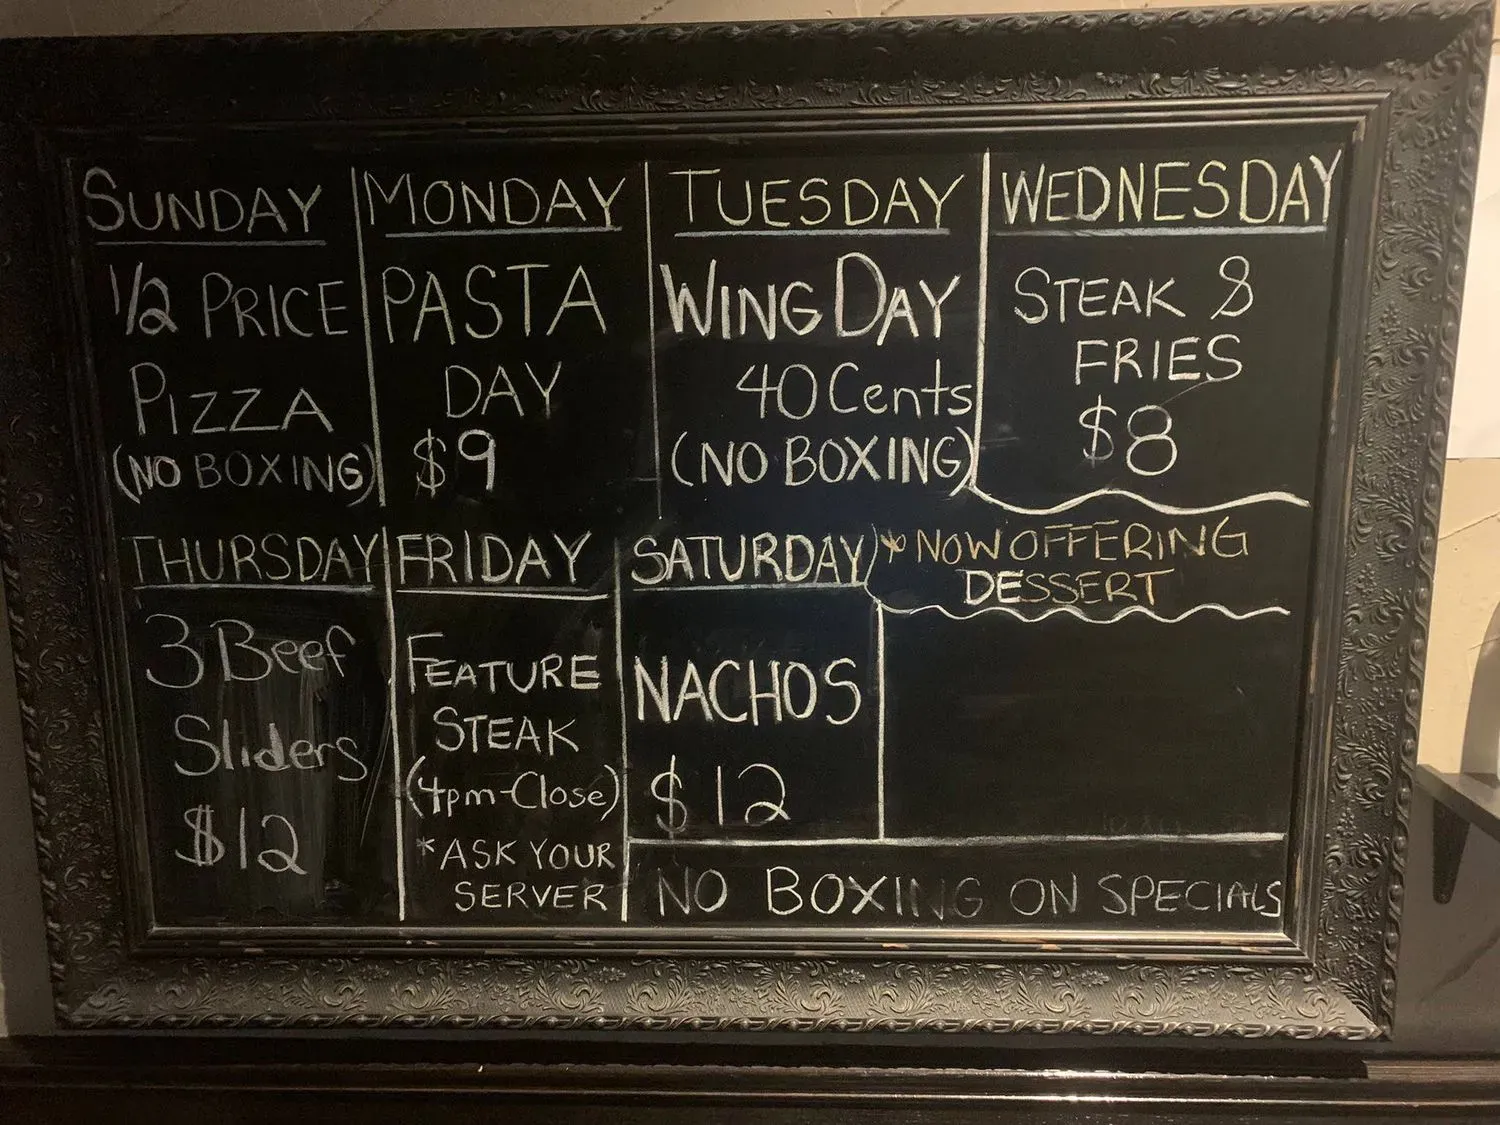 SUNDAY
1/2 PRICE
PIZZA
(NO BOXING)
MONDAY
PASTA
DAY
$9
TUESDAY
WING DAY
40 Cents
(NO BOXING)
WEDNESDAY
STEAK &
FRIES
$8
THURSDAY
3 Beef
Sliders
$12
FRIDAY
FEATURE
STEAK
(4pm-Close)
*ASK YOUR
SERVER
SATURDAY
NACHOS
$12
*NOW OFFERING
DESSERT
NO BOXING ON SPECIALS